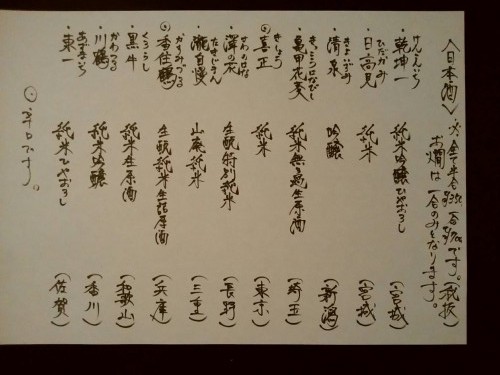 〈日本酒〉 ※全て半合 一合 です。(税抜)
お燗は一合のみとなります。
けんこんいち
・乾坤一 純米吟醸ひやおろし (宮城)
ひだかみ
・日高見 純米 (宮城)
きよいずみ
・清泉 吟醸 (新潟)
きっこうはなびし
・亀甲花菱 純米無ろ過生原酒 (埼玉)
きしょう
◎喜正 純米 (東京)
さわのはな
・澤の花 生酛特別純米 (長野)
たきじまん
・瀧自慢 山廃純米 (三重)
かすみづる
◎香住鶴 生酛純米生詰原酒 (兵庫)
くろうし
・黒牛 純米生原酒 (和歌山)
かわつる
・川鶴 純米吟醸 (香川)
あずまいち
・東一 純米ひやおろし (佐賀)
◎辛口です。